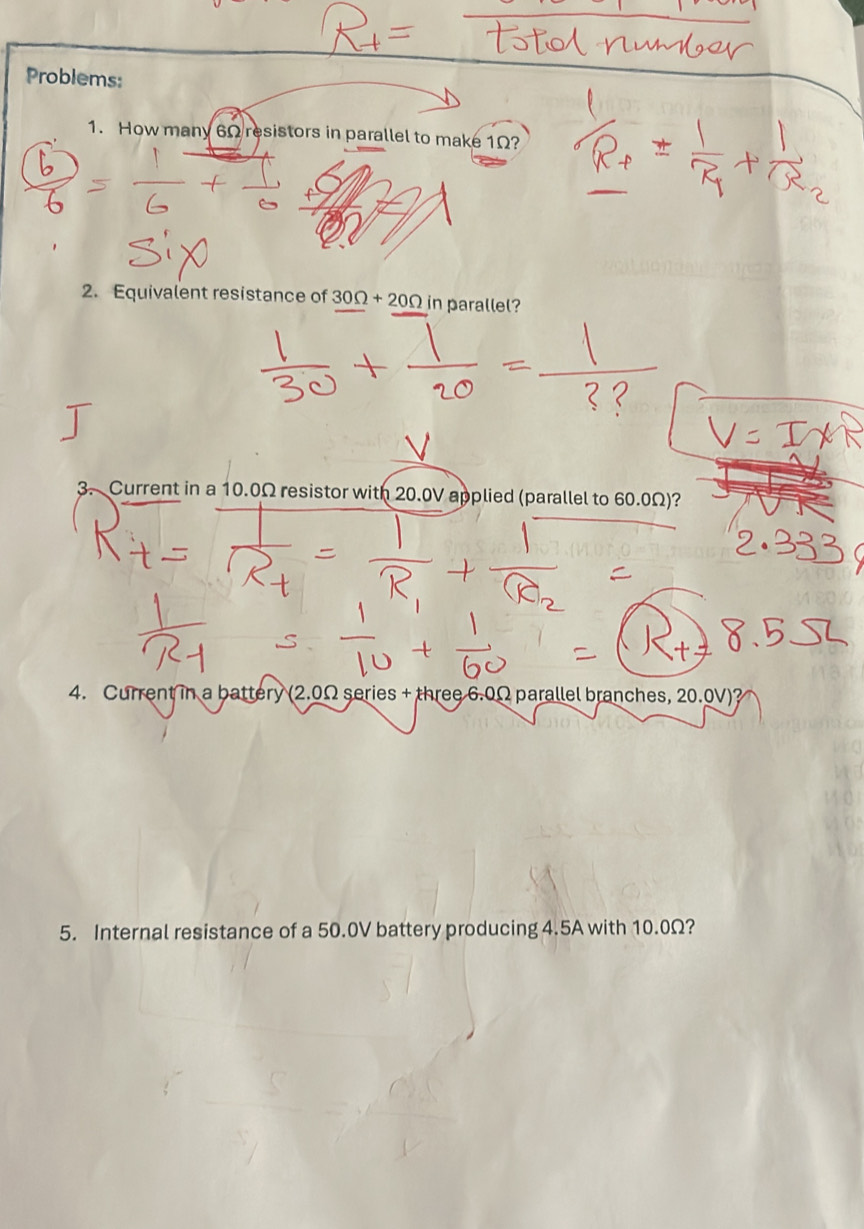 R_t = total number
Problems:
1. How many 6Ω resistors in parallel to make 1Ω?
1/R_t = 1/R_1 + 1/R_2
6/6 = 1/6 + 1/6
six
2. Equivalent resistance of 30Ω + 20Ω in parallel?
1/30 + 1/20 = 1/??
I
V = I × R
V
3. Current in a 10.0Ω resistor with 20.0V applied (parallel to 60.0Ω)?
2.333
R_t = 1/R_t = 1/R_1 + 1/R_2 =
1/R_t = 1/10 + 1/60 = R_t = 8.5Ω
4. Current in a battery (2.0Ω series + three 6.0Ω parallel branches, 20.0V)?
5. Internal resistance of a 50.0V battery producing 4.5A with 10.0Ω?